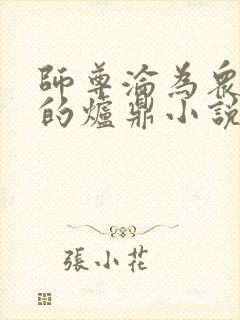 師尊淪為眾
的爐鼎小說
張小花